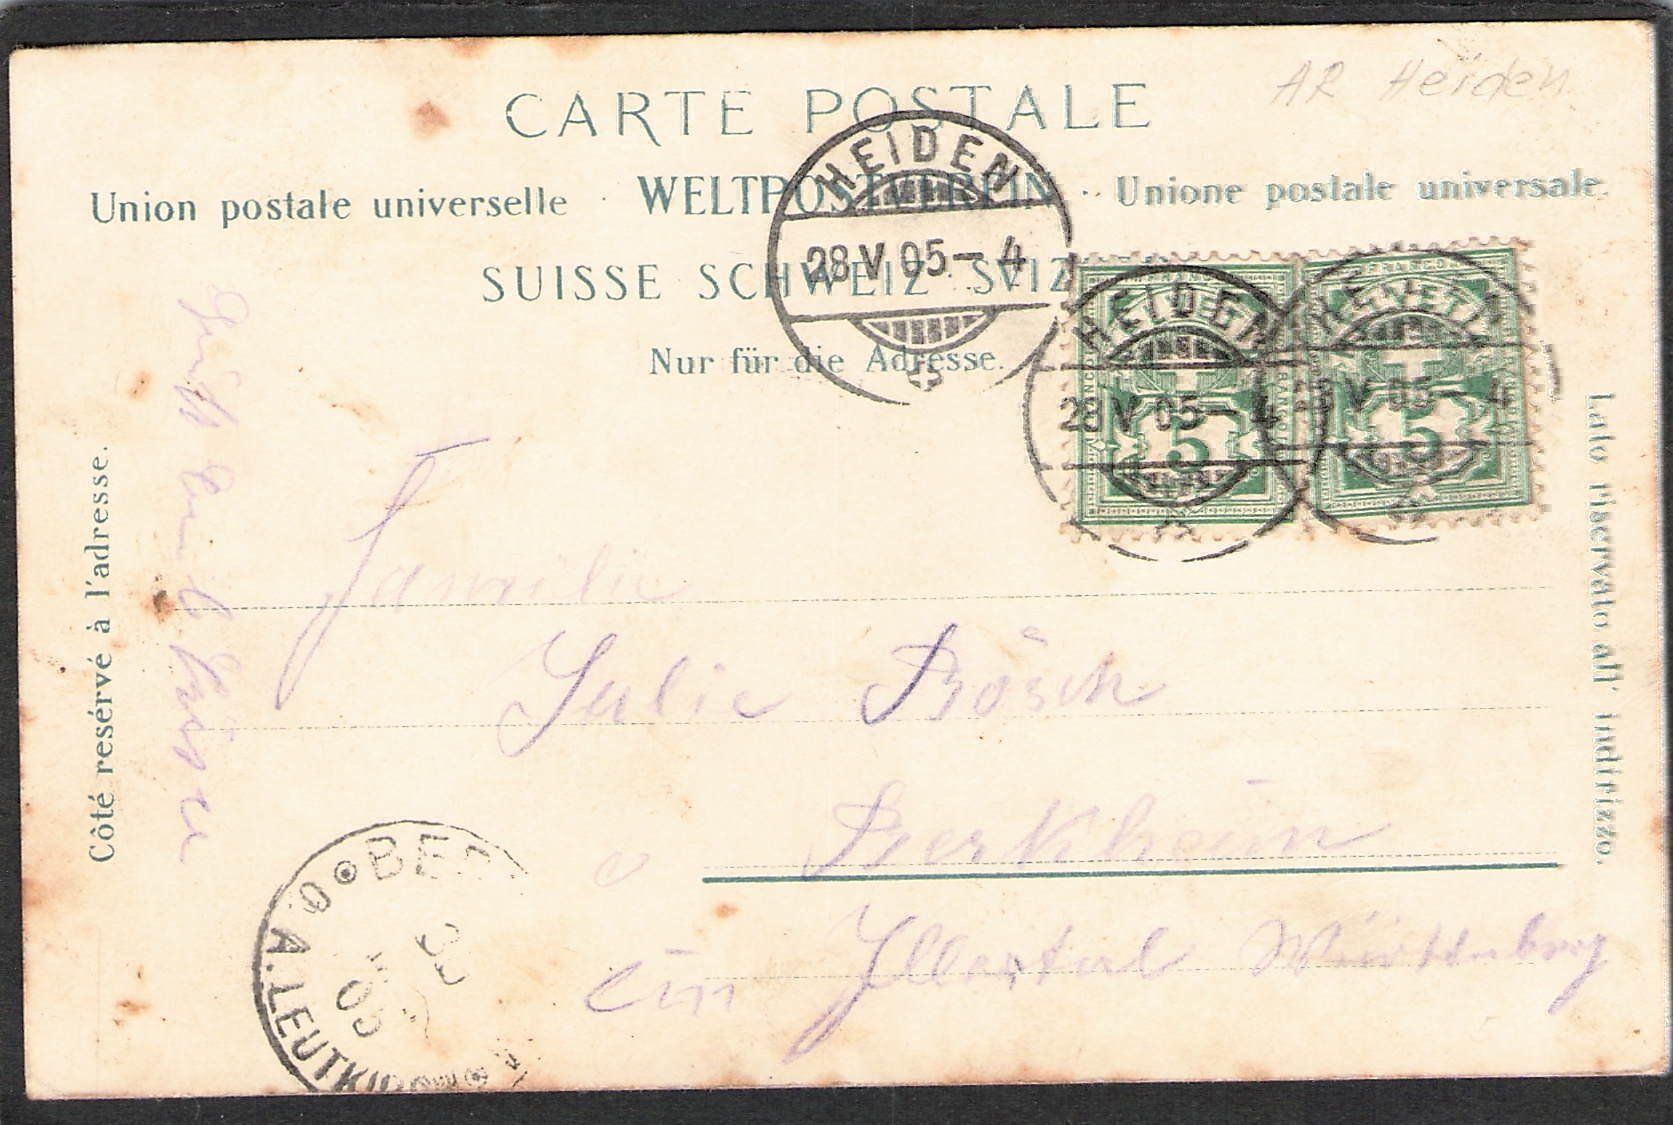 AR Heiden
CARTE POSTALE
Union postale universelle · WELTPOSTVEREIN · Unione postale universale
SUISSE SCHWEIZ SVIZZERA
Nur für die Adresse.
HEIDEN
28 V 05 – 4
HEIDEN
28 V 05 – 4
FRANCO
HELVETIA
5
HEIDEN
28 V 05 – 4
FRANCO
HELVETIA
5
Côté resérvé à l'adresse.
Lato riservato all' indirizzo.
Familie
Julie Bösch
Berkheim
im Illertal Württenberg
A. LEUTKIRCH
05